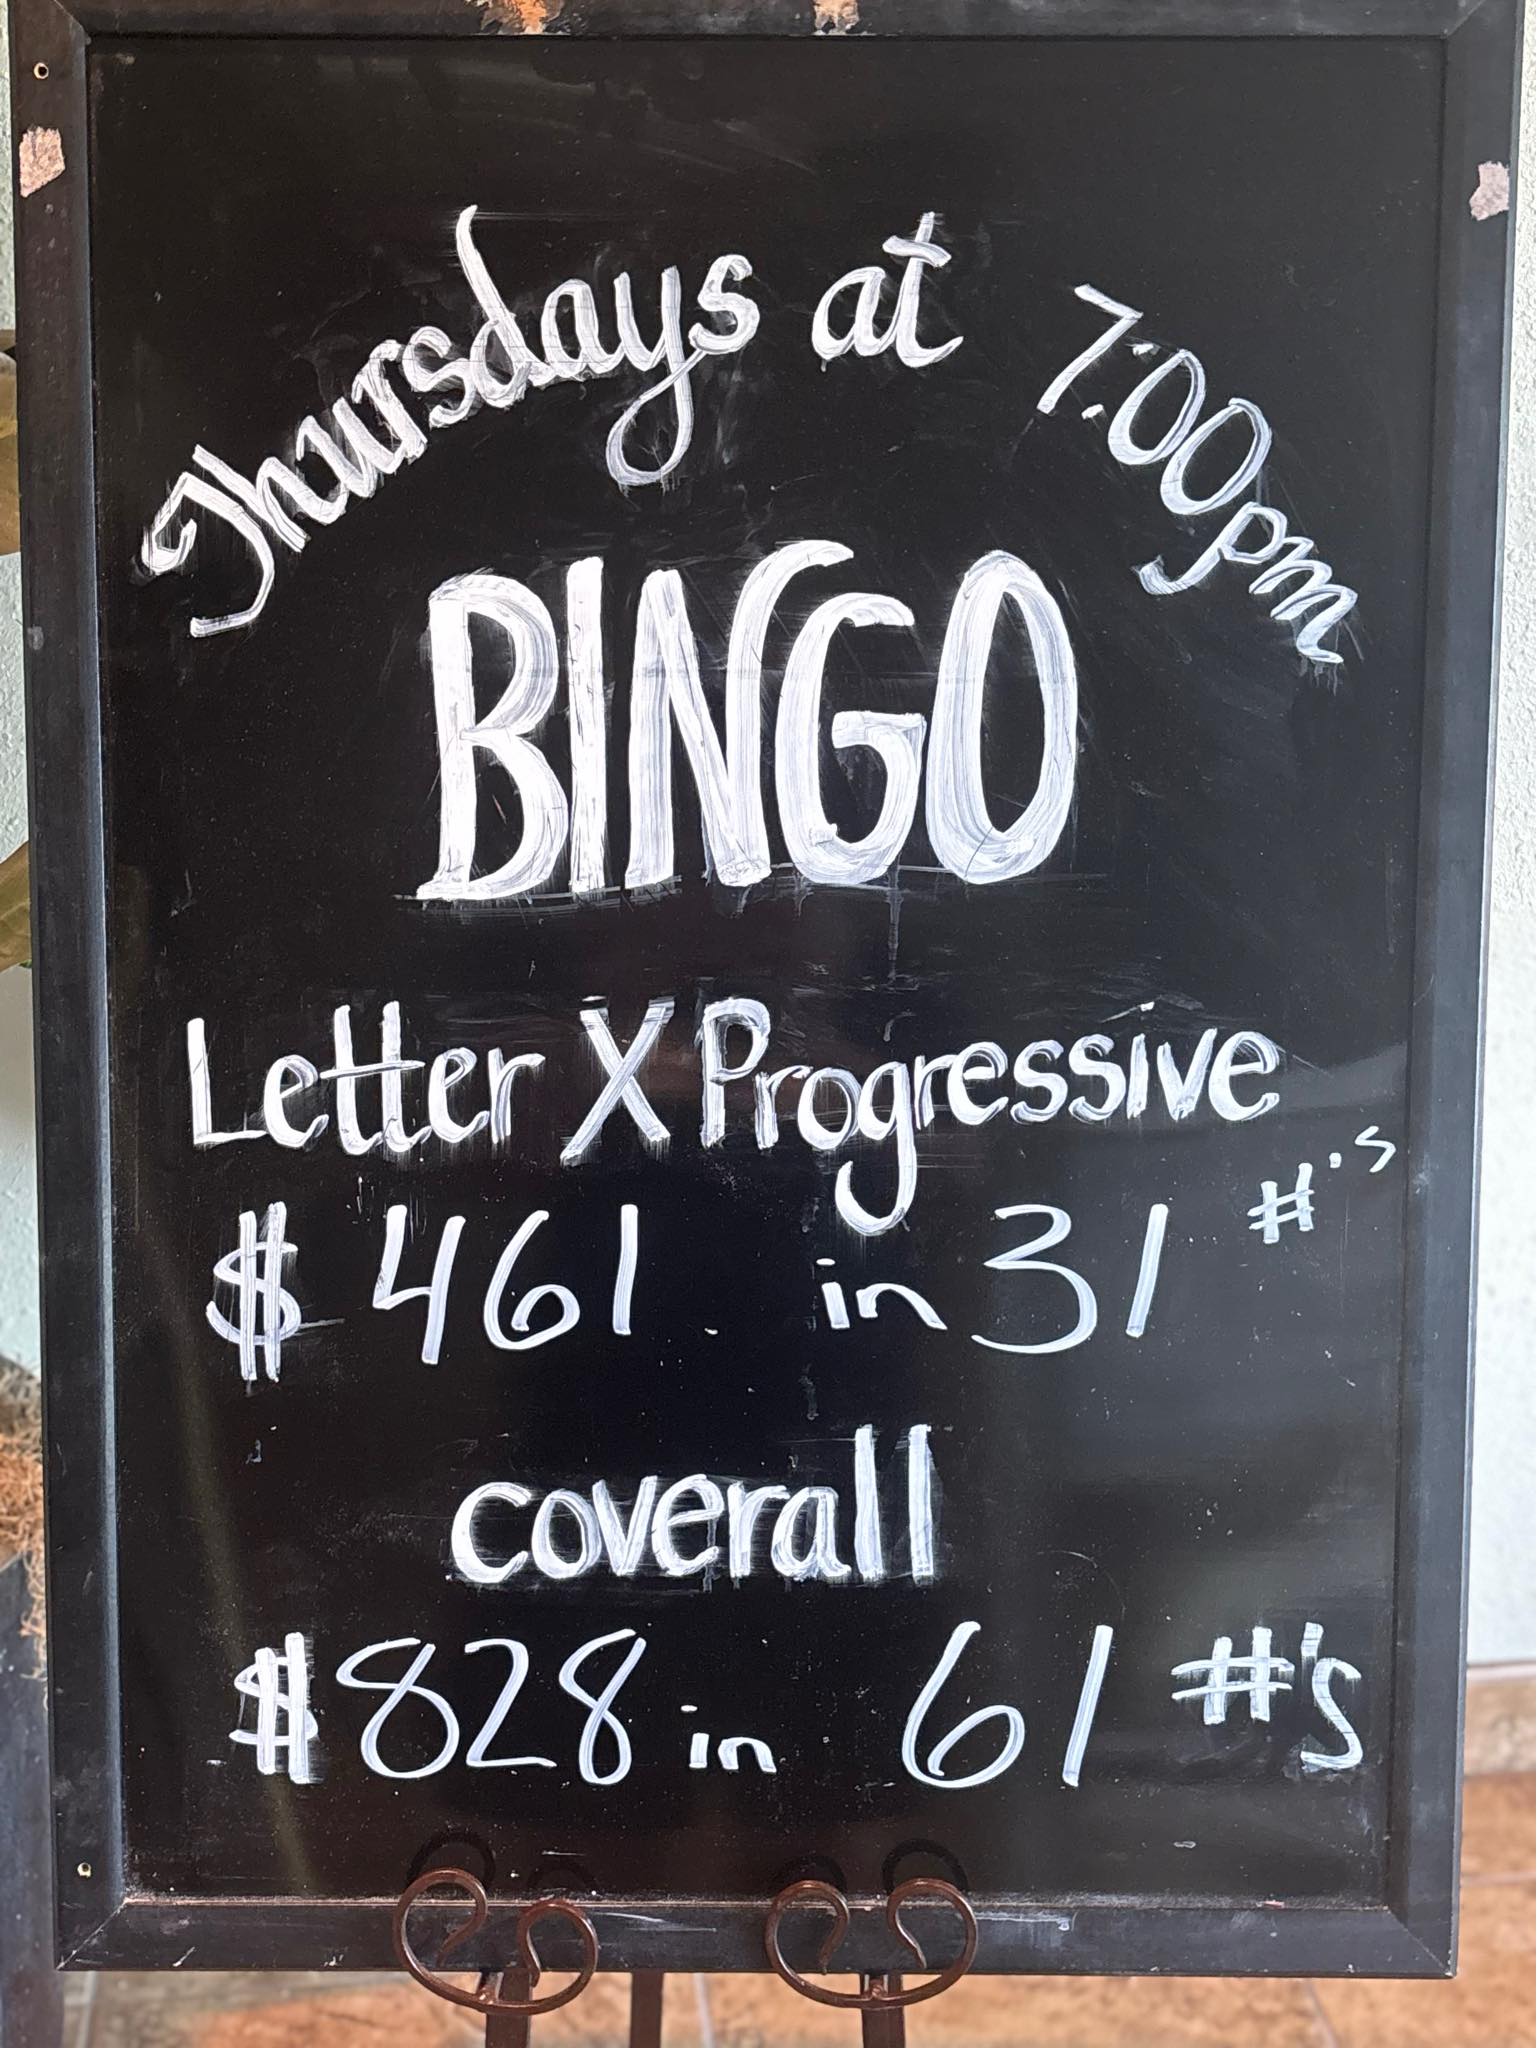 Thursdays at 7:00pm
BINGO
Letter X Progressive
$ 461 in 31 #'s
coverall
$828 in 61 #'s